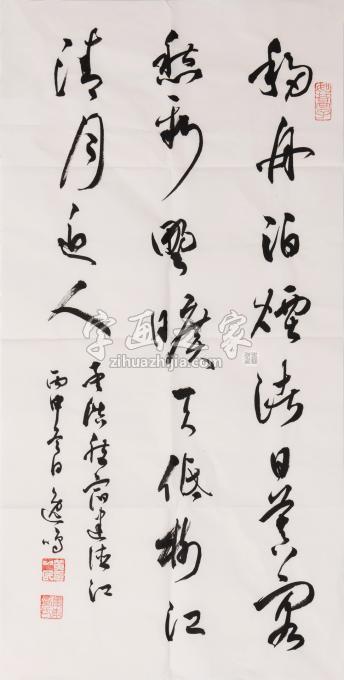 移舟泊煙渚日暮客
愁新野曠天低樹江
清月近人
孟浩然宿建德江
丙申冬日逸鳴
字画之家
zihuazhijia.com